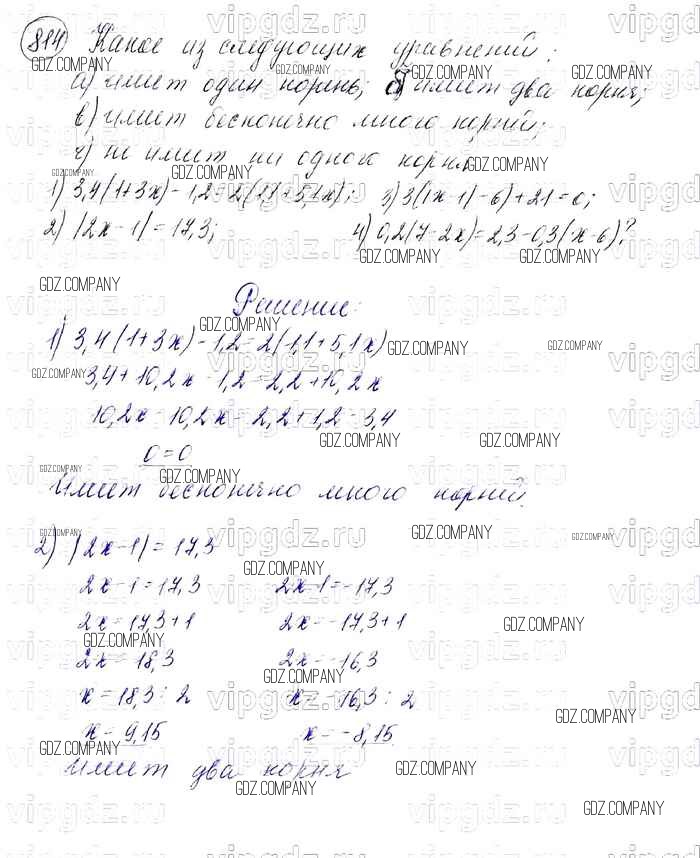 814 Какое из следующих уравнений:
а) имеет один корень; б) имеет два корня;
в) имеет бесконечно много корней;
г) не имеет ни одного корня
1) 3,4(1+3x) - 1,2 = 2(1,1+5,1x); 3) 3(|x-1|-6)+21=0;
2) |2x-1| = 17,3; 4) 0,2(7-2x) = 2,3-0,3(x-6)?
Решение:
1) 3,4(1+3x) - 1,2 = 2(1,1+5,1x)
3,4+10,2x-1,2=2,2+10,2x
10,2x-10,2x=2,2+1,2-3,4
0=0
Имеет бесконечно много корней.
2) |2x-1| = 17,3
2x-1=17,3 2x-1=-17,3
2x=17,3+1 2x=-17,3+1
2x=18,3 2x=-16,3
x=18,3:2 x=-16,3:2
x=9,15 x=-8,15
Имеет два корня
vipgdz.ru
GDZ.COMPANY